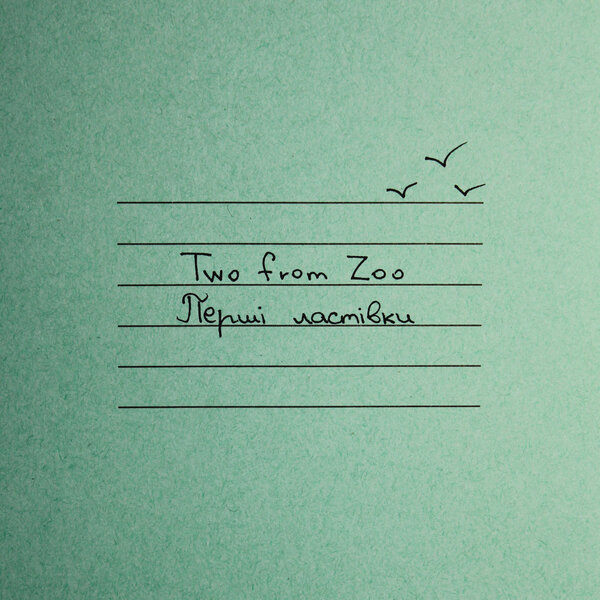 Two from Zoo
Перші ластівки